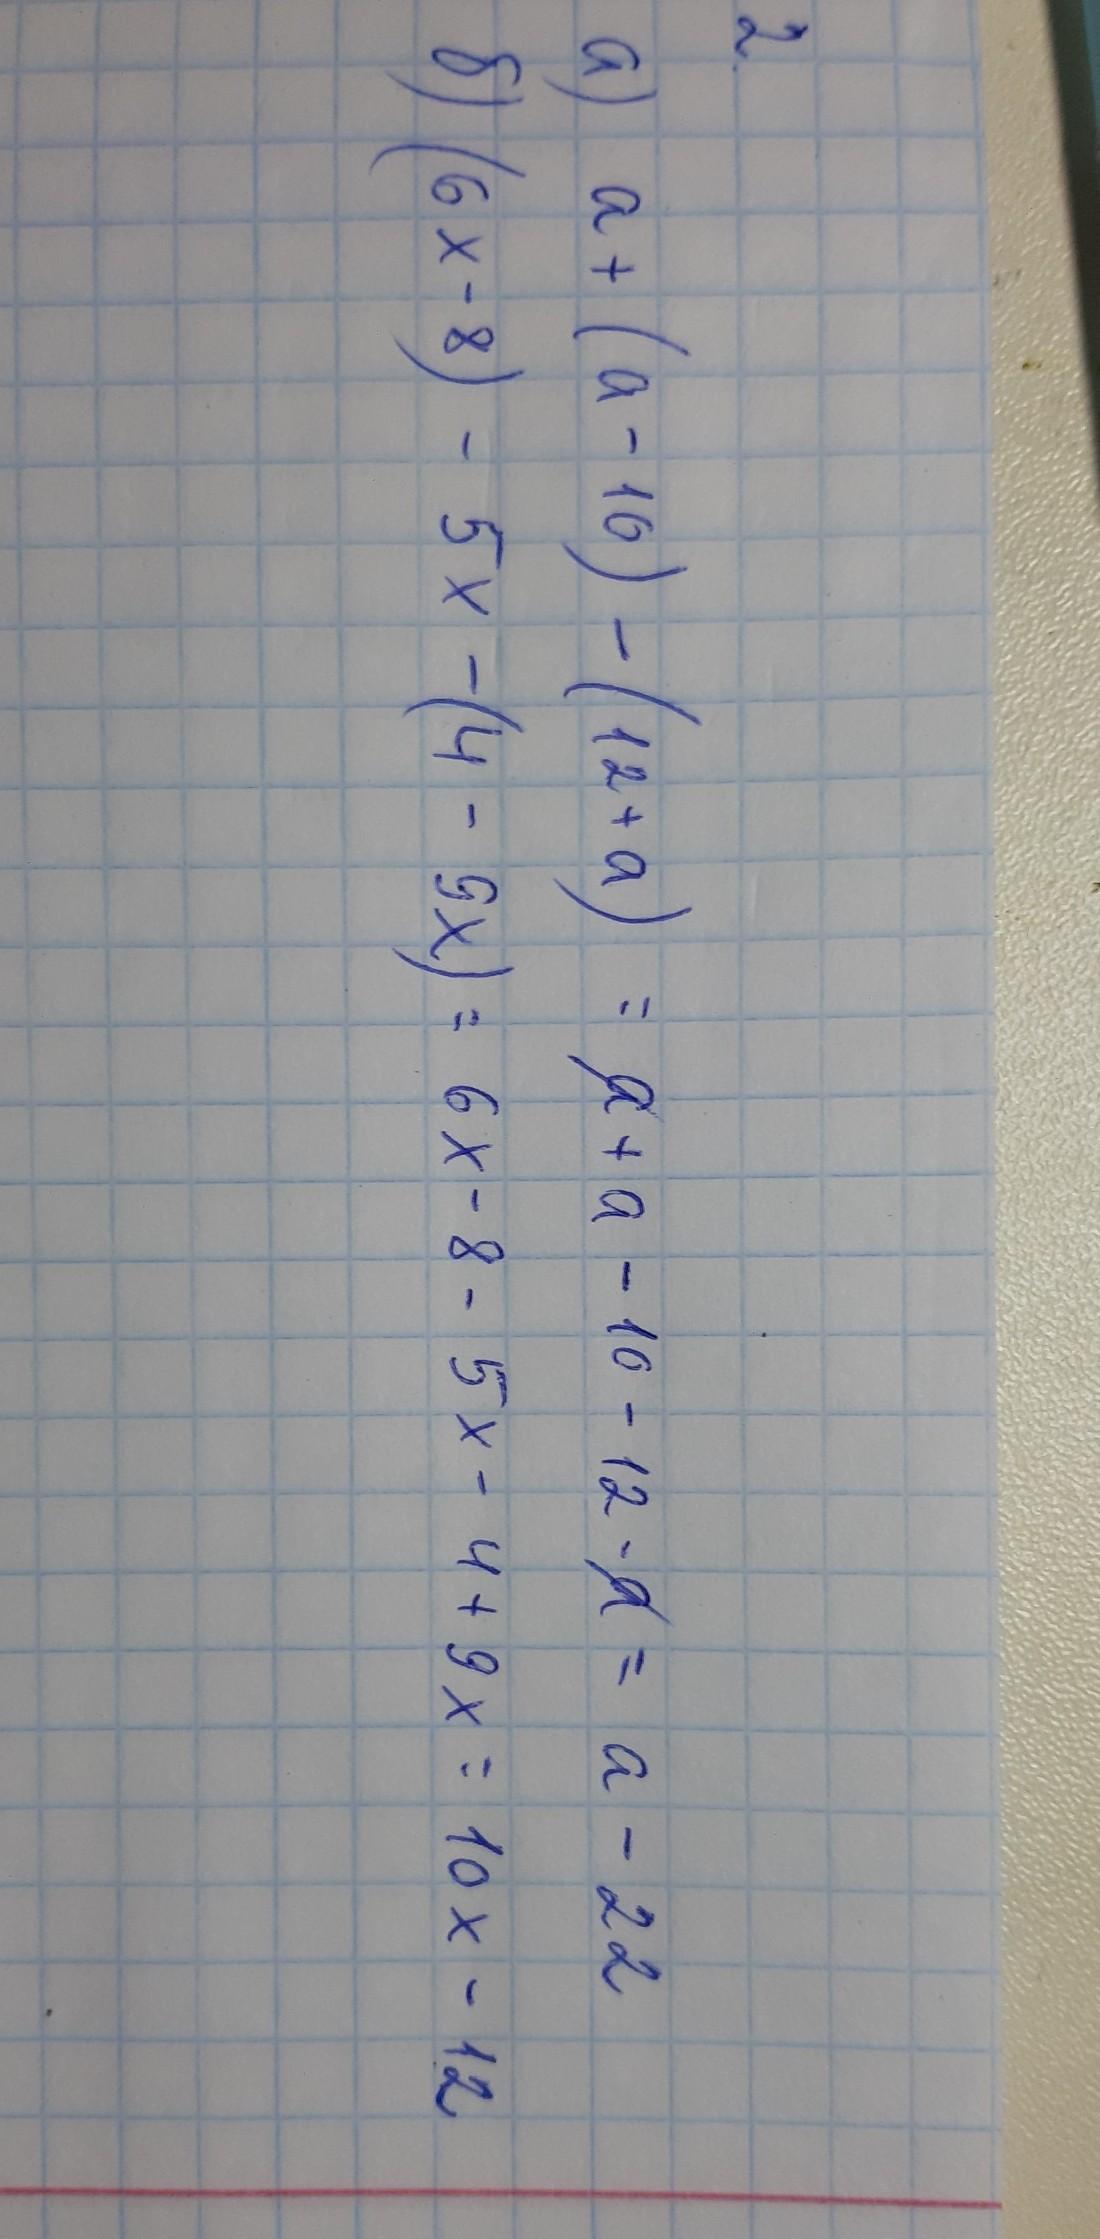 2.
а) a + (a - 10) - (12 + a) = a + a - 10 - 12 - a = a - 22
б) (6x - 8) - 5x - (4 - 9x) = 6x - 8 - 5x - 4 + 9x = 10x - 12